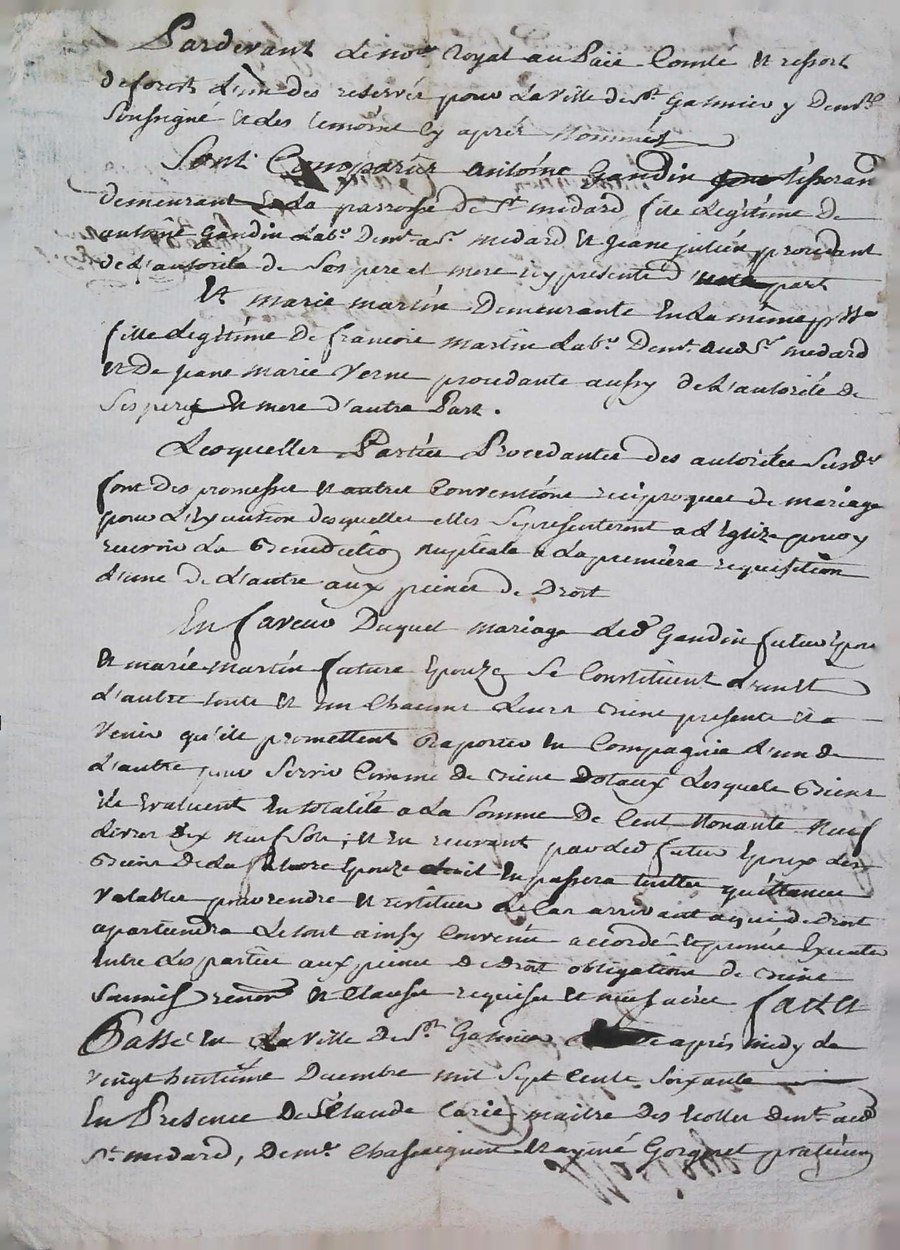 Pardevant Le no.re Royal au Paiis Comté et ressort
de forest L'un des reservés pour La Ville de S.t Galmier y Dem.t
soussigné et des temoins Cy apres Nommés
Sont Comparus antoine Gaudin tisseran
demeurant en La parroisse de S.t medard fils Legitime de
antoine Gaudin Lab.r Dem.t a S.t medard et jeane julien procedant
de L'autorité de Ses pere et mere icy presents d'une part
Et marie martin Demeurante En La même p.sse
fille Legitime De francois martin Lab.r Dem.t aud S.t medard
et De jeane marie Verne procedante aussy de L'autorité de
Ses pere et mere d'autre Part .
Lesquelles Parties Procedantes des autorites Susd.s
font des promesses et autres Conventions reciproques de mariage
pour L'Execution desquelles elles Se presenteront a L'Eglize pour y
recevoir La Benediction Nuptiale a La premiere requisition
L'une de L'autre aux peines de Droit
En faveur Duquel mariage Led Gaudin futur Epoux
et marie martin future Epouze Se Constituent L'un et
L'autre touts et un Chacuns Leurs biens presents et a
Venir qu'ils promettent Raporter En Compagnie L'un de
L'autre pour Servir Comme de biens Dotaux Lesquels Biens
ils Evaluent En totalité a La Somme De Cent Nonante Neuf
Livres Dix Neuf Sols ; et En recevant par led futur Epoux Les
Biens De La future Epouze En passera touttes quittances
Valables pour rendre et restituer Le Cas arrivant a qui de Droit
apartiendra Le tout ainsy Convenu accordé et promis Executer
Entre Les parties aux peines De Droit obligations de biens
Soumis.s renon.on et Clauses requises et necessaires fait et
Passé En La Ville De S.t Galmier apres midy Le
Vingt huitieme Decembre mil Sept Cents Soixante
En Presence De Claude Carié maitre des Ecolles Dem.t aud
S.t medard, De m.e Chassaignon et aymé Gorgeret praticiens